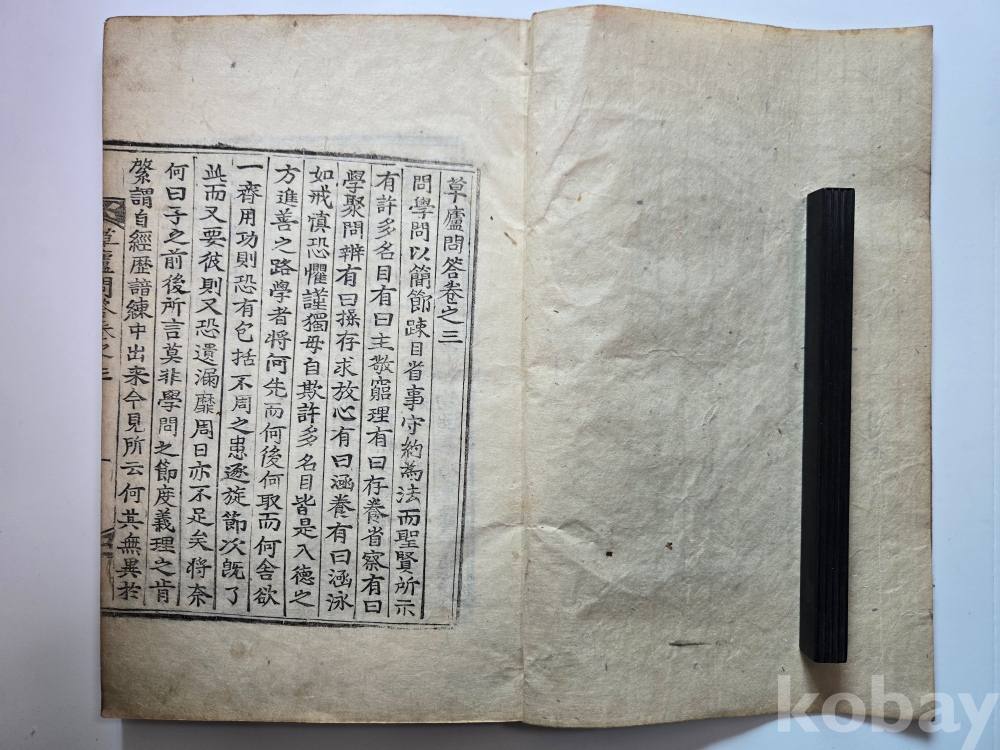 草廬問答卷之三
問學問以簡節踈目省事守約為法而聖賢所示
有許多名目有曰主敬窮理有曰存養省察有曰
學聚問辨有曰操存求放心有曰涵養有曰涵泳
如戒慎恐懼謹獨毋自欺許多名目皆是入德之
方進善之路學者將何先而何後何取而何舍欲
一齊用功則恐有包括不周之患逐旋節次旣了
此而又要彼則又恐遺漏靡周日亦不足矣將奈
何曰子之前後所言莫非學問之節度義理之肯
綮謂自經歷諳練中出来今見所云何其無異於
草廬問答卷之三
kobay